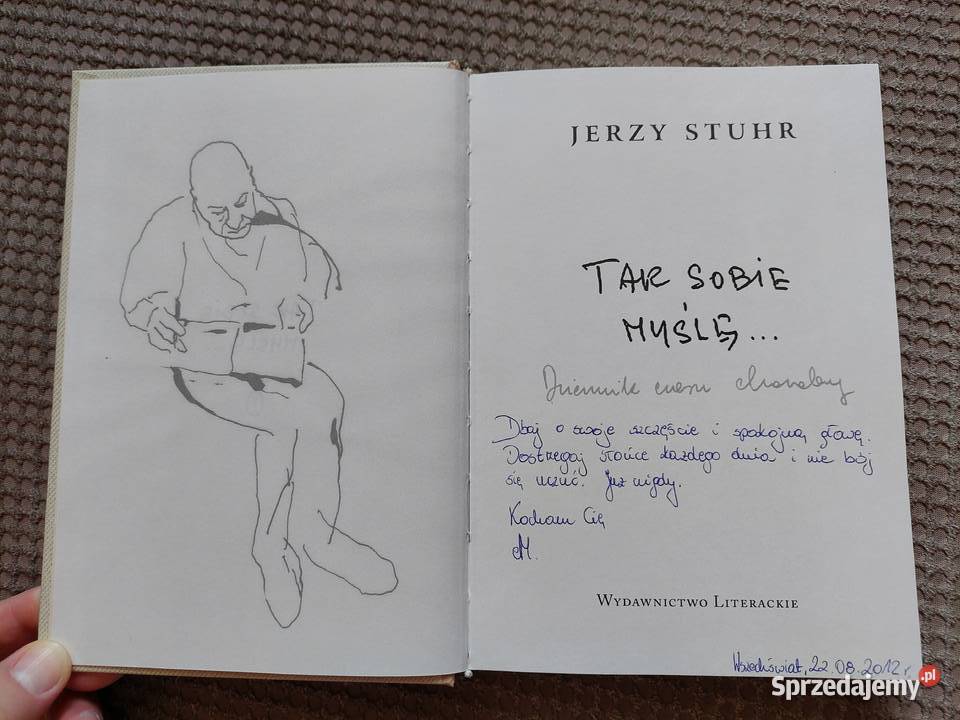 JERZY STUHR
TAK SOBIE
MYŚLĘ...
Dziennik czasu choroby
Dbaj o swoje szczęście i spokojną głowę.
Dostrzegaj słońce każdego dnia i nie bój
się uczuć. Już nigdy.
Kocham Cię
M.
WYDAWNICTWO LITERACKIE
Wszechświat, 22.08.2012 r.
Sprzedajemy.pl